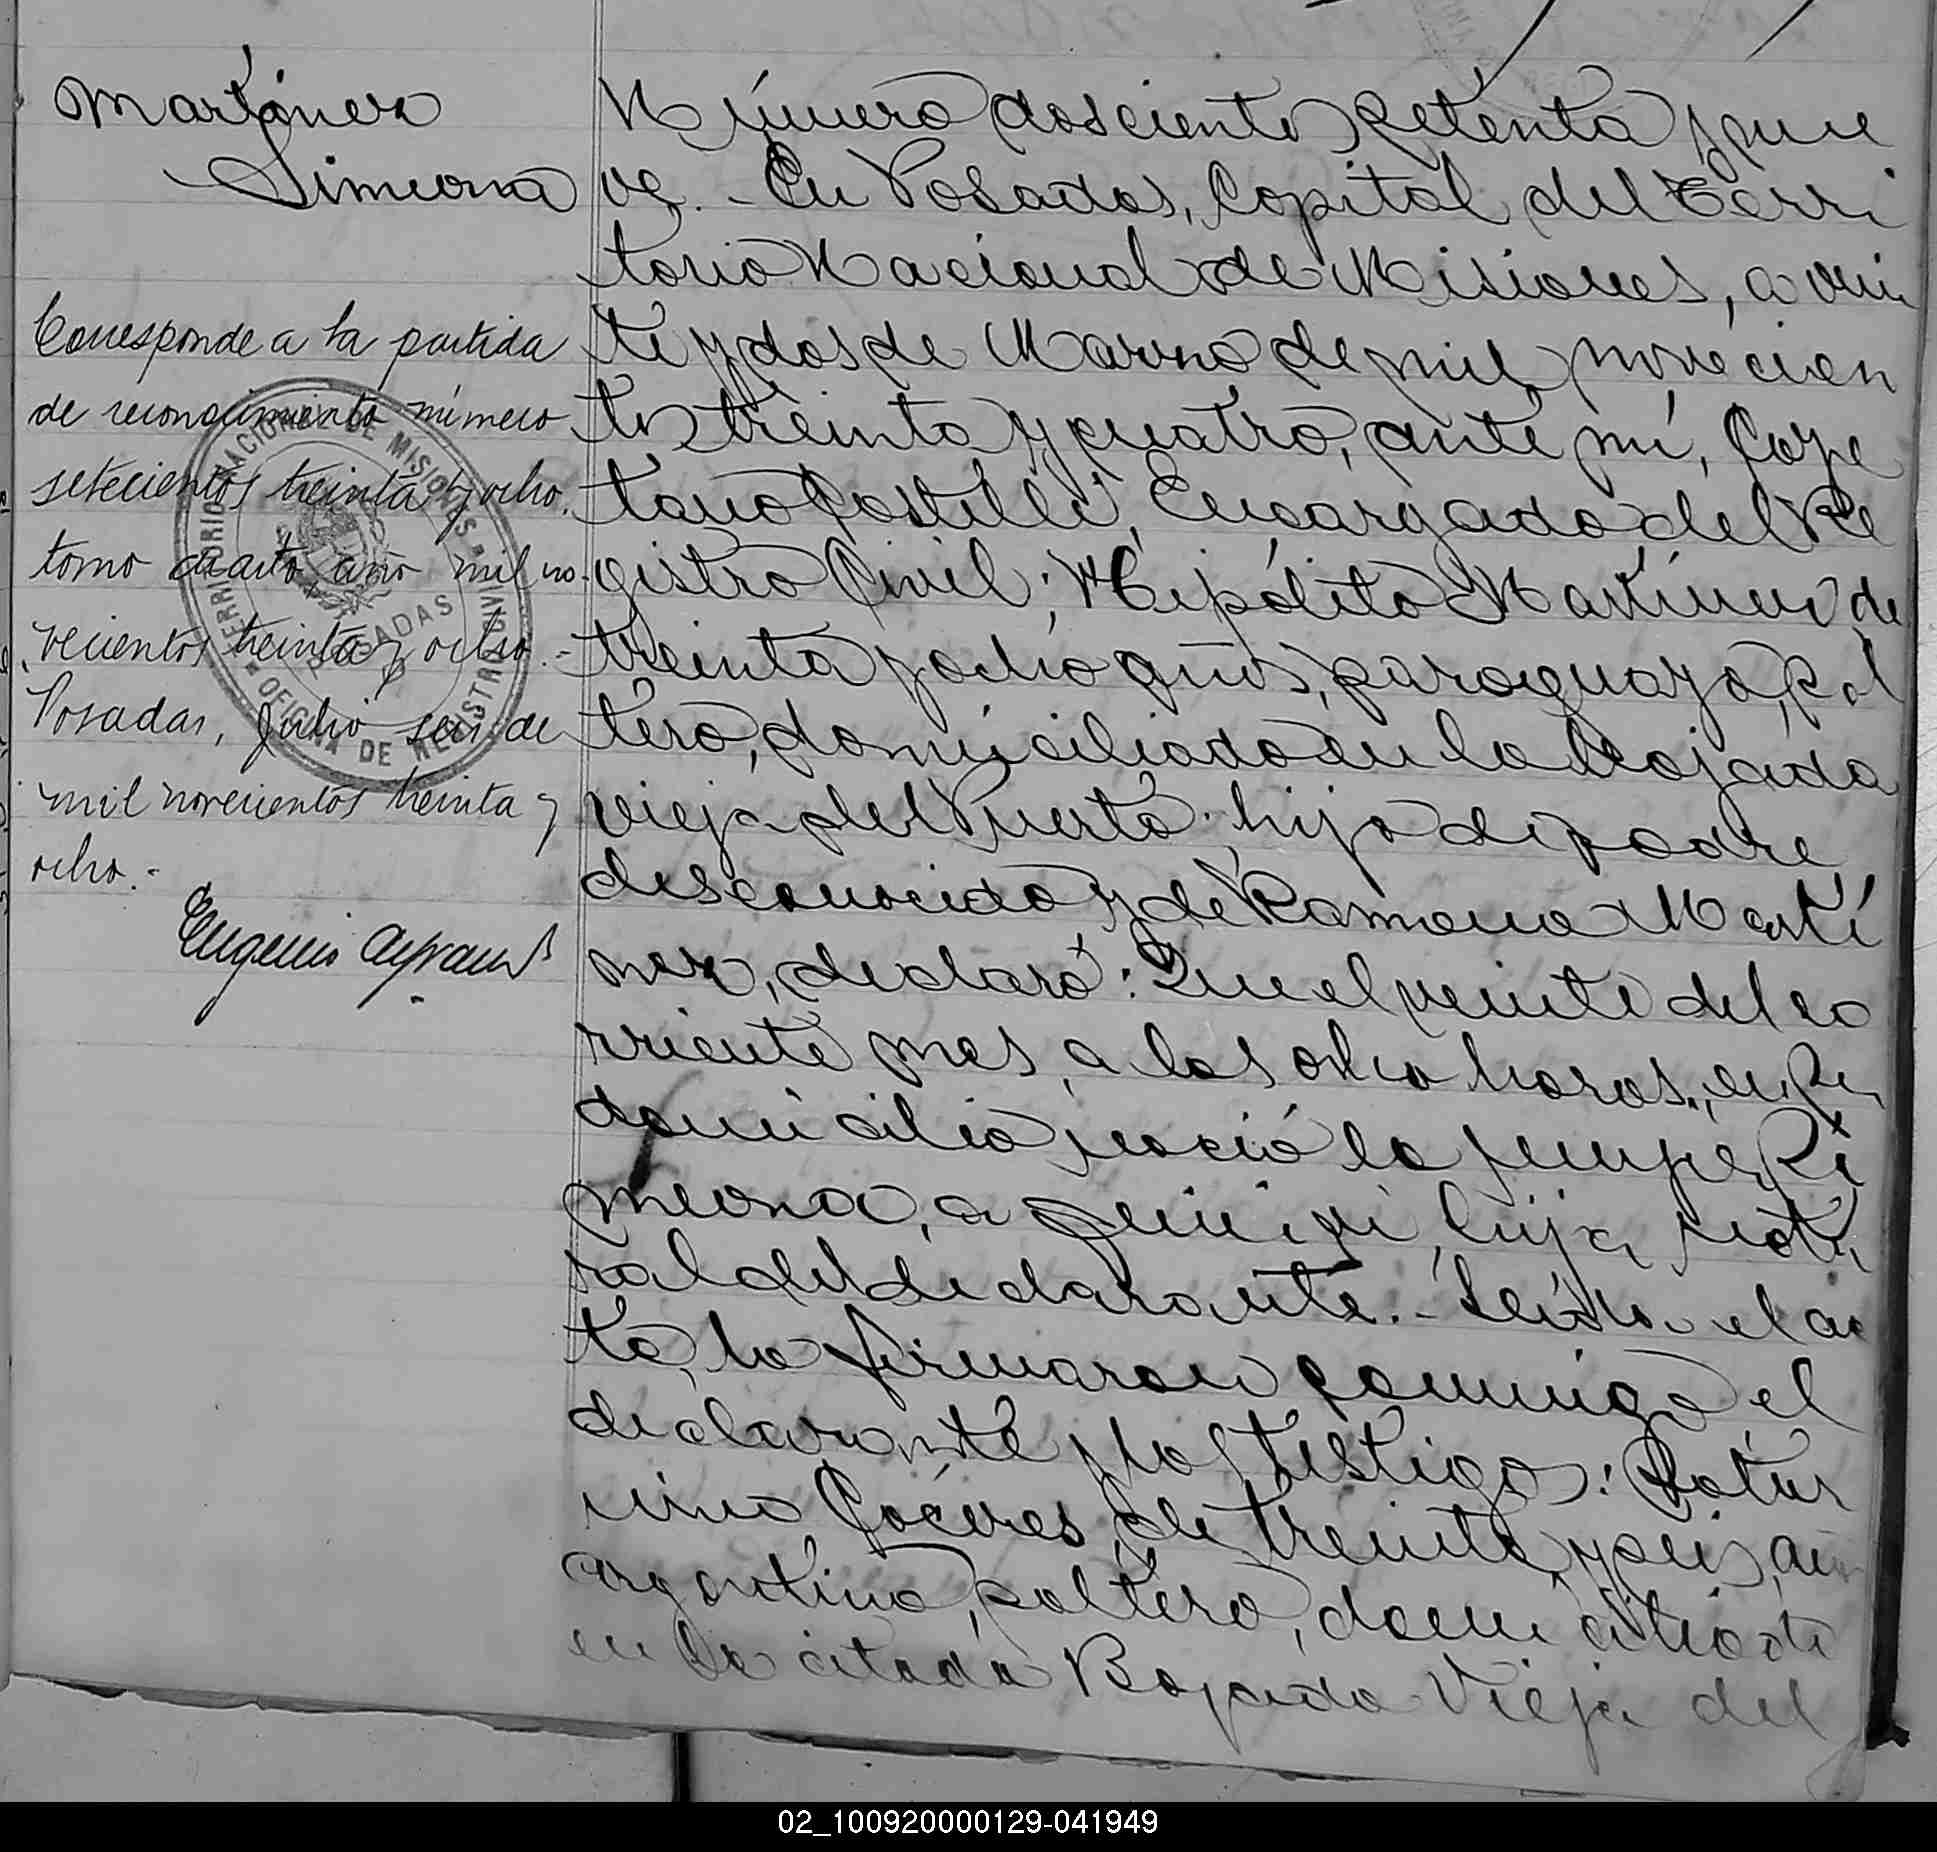 Martínez
Simeona
Corresponde a la partida
de reconocimiento número
setecientos treinta y ocho.
tomo cuarto año mil no-
vecientos treinta y ocho.-
Posadas, Julio seis de
mil novecientos treinta y
ocho.-
Eugenio
TERRITORIO NACIONAL DE MISIONES
OFICINA DE REGISTRO CIVIL
POSADAS
Número doscientos setenta y nue
ve.- En Posadas, Capital del Terri
torio Nacional de Misiones, a vein
te y dos de Marzo de mil novecien
tos treinta y cuatro, ante mí, Caye
tano Castelli, Encargado del Re
gistro Civil; Hipólito Martínez de
treinta y ocho años, paraguayo, sol
tero, domiciliado en la Bajada
vieja del Puerto, hijo de padre
desconocido y de Ramona Martí
nez, declaró: Que el veinte del co
rriente mes, a las ocho horas, en su
domicilio nació la Si
meona, a quien vi, hija natu
ral del declarante.- Leída el ac
ta, la firmaron conmigo el
declarante y los testigos: Satur
nino Cáceres de treinta y seis años
argentino, soltero, domiciliado
en la citada Bajada Vieja del
02_100920000129-041949